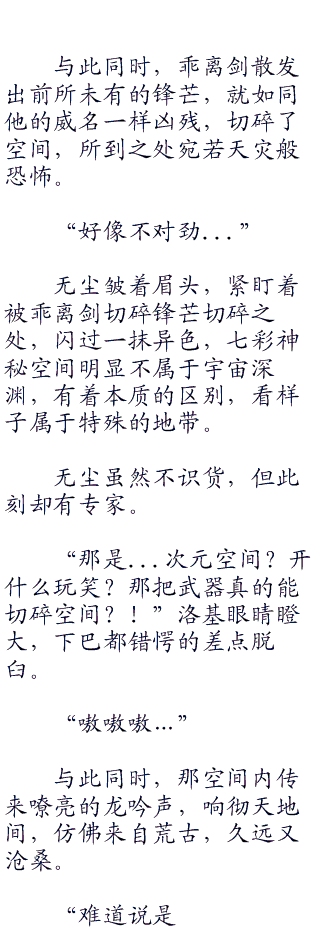 与此同时，乖离剑散发
出前所未有的锋芒，就如同
他的威名一样凶残，切碎了
空间，所到之处宛若天灾般
恐怖。
“好像不对劲...”
无尘皱着眉头，紧盯着
被乖离剑切碎锋芒切碎之
处，闪过一抹异色，七彩神
秘空间明显不属于宇宙深
渊，有着本质的区别，看样
子属于特殊的地带。
无尘虽然不识货，但此
刻却有专家。
“那是...次元空间？开
什么玩笑？那把武器真的能
切碎空间？！”洛基眼睛瞪
大，下巴都错愕的差点脱
臼。
“嗷嗷嗷…”
与此同时，那空间内传
来嘹亮的龙吟声，响彻天地
间，仿佛来自荒古，久远又
沧桑。
“难道说是